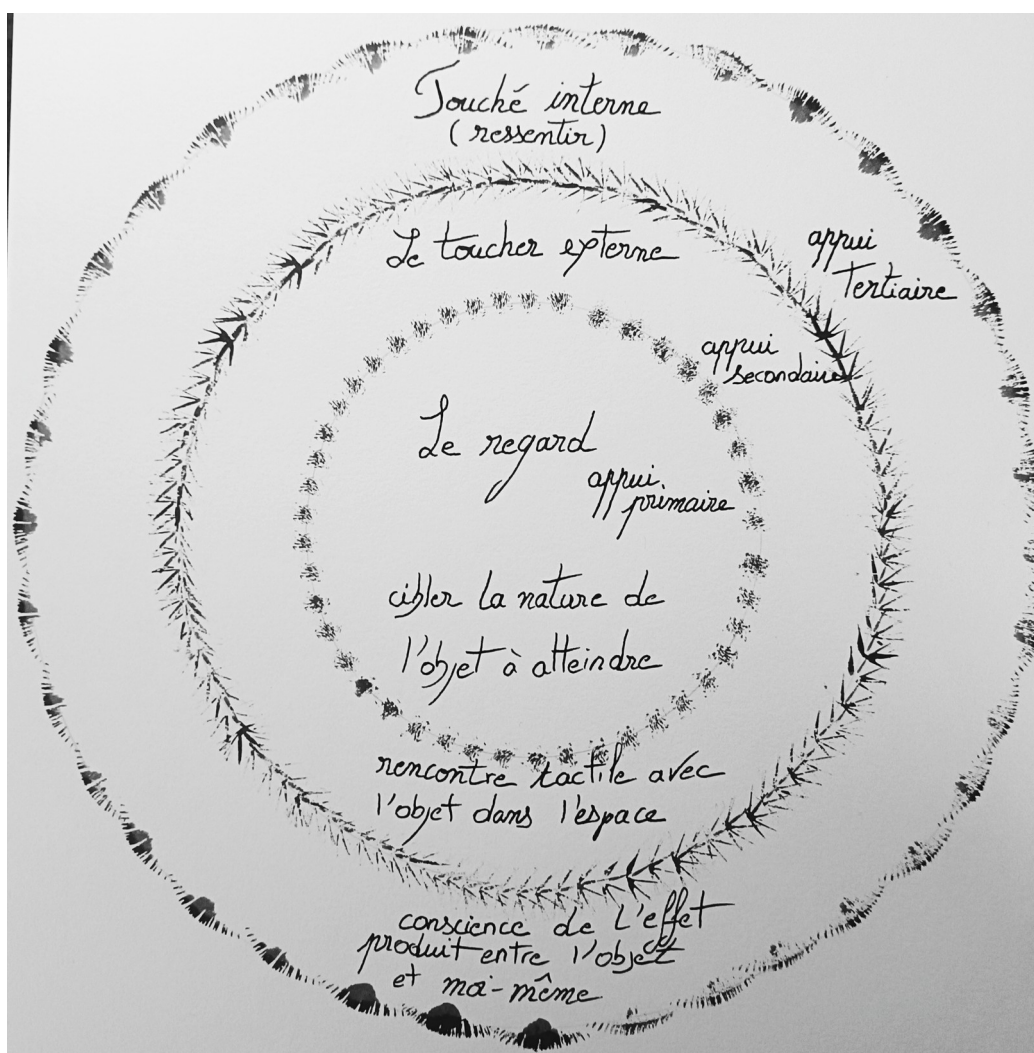 Touché interne
(ressentir)
Le toucher externe
appui
Tertiaire
appui
secondaire
Le regard
appui
primaire
cibler la nature de
l'objet à atteindre
rencontre tactile avec
l'objet dans l'espace
conscience de L'effet
produit entre l'objet
et moi-même